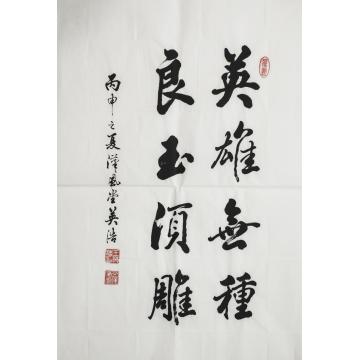 英雄無種
良玉須雕
丙申之夏漢風堂英浩